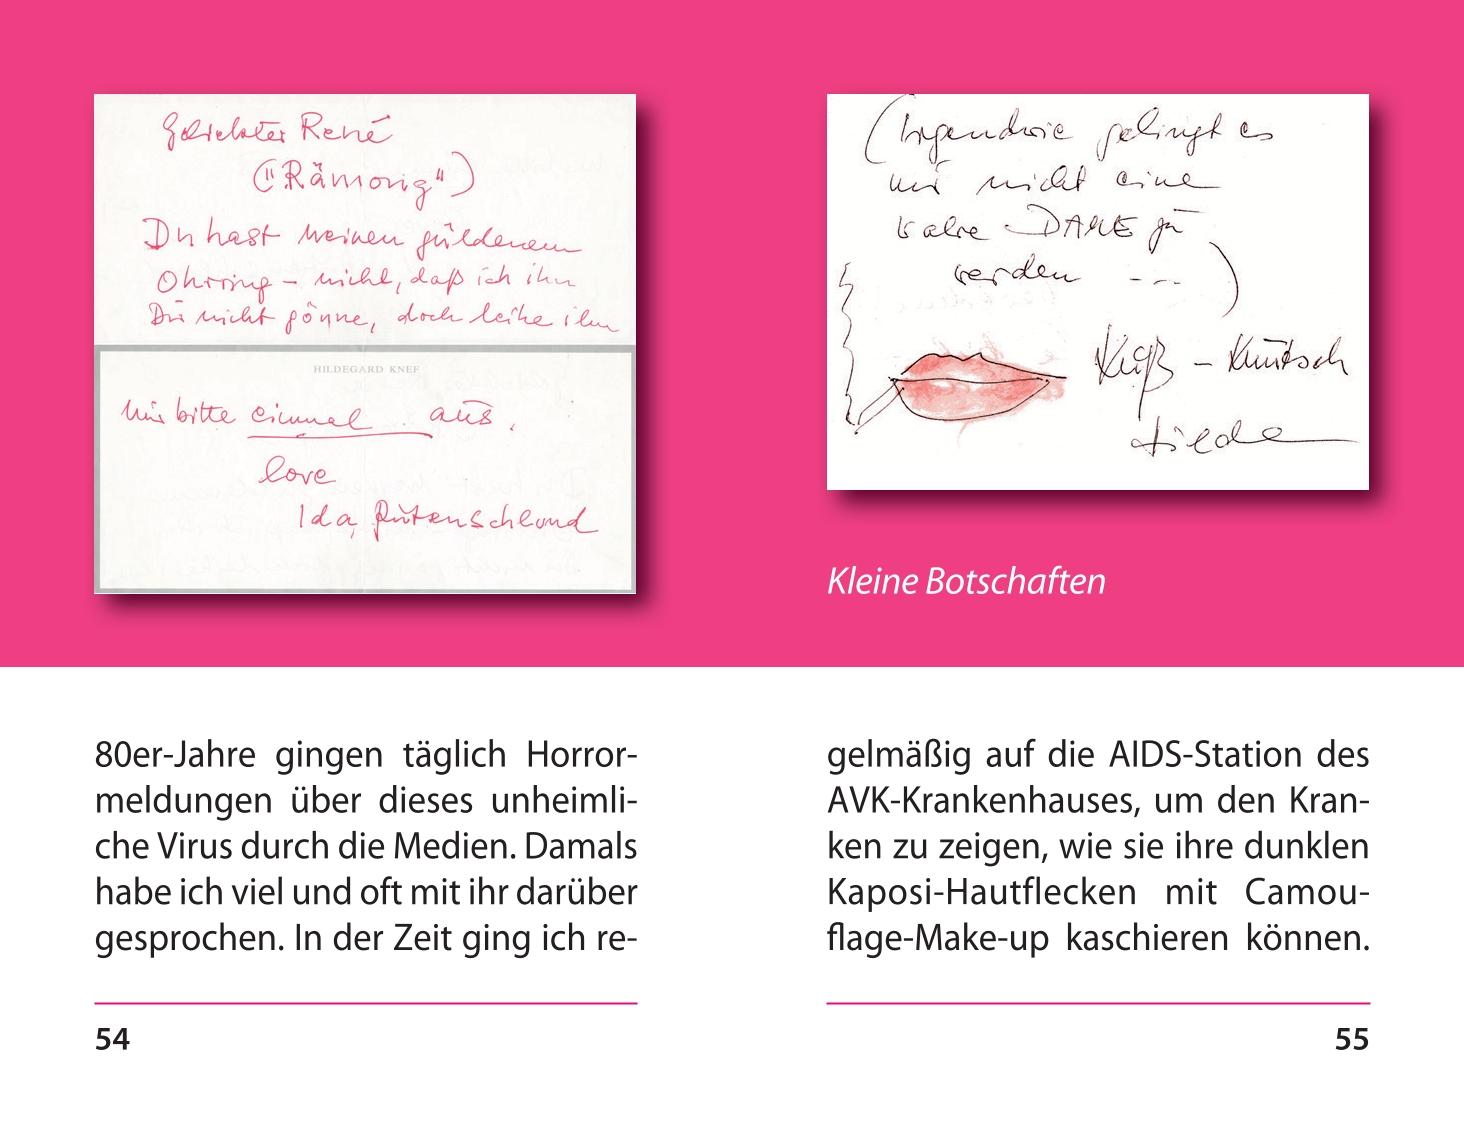 Geliebter René
("Rämorig")
Du hast meinen güldenen
Ohrring – nicht, daß ich ihn
Dir nicht gönne, doch leihe ihn
HILDEGARD KNEF
mir bitte einmal aus.
love
Ida
(Irgendwie gelingt es
mir nicht eine
wahre DAME zu
werden ---)
Kuß – Knutsch
Kleine Botschaften
80er-Jahre gingen täglich Horror-
meldungen über dieses unheimli-
che Virus durch die Medien. Damals
habe ich viel und oft mit ihr darüber
gesprochen. In der Zeit ging ich re-
54
gelmäßig auf die AIDS-Station des
AVK-Krankenhauses, um den Kran-
ken zu zeigen, wie sie ihre dunklen
Kaposi-Hautflecken mit Camou-
flage-Make-up kaschieren können.
55